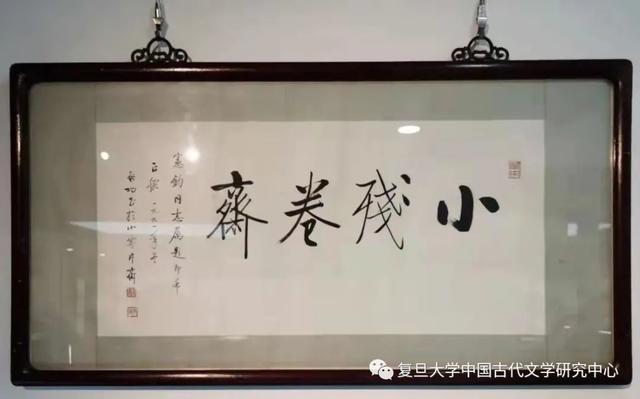 小殘卷齋
憲鈞同志屬題即希
正 一九九一年冬
啟功
复旦大学中国古代文学研究中心